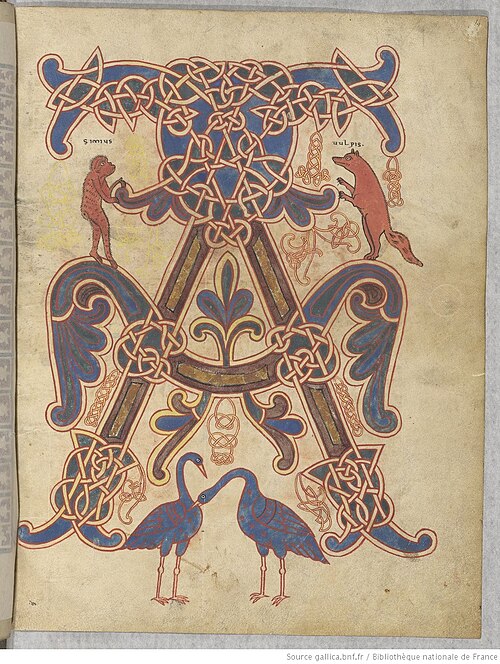 Simius
uulpis.
Source gallica.bnf.fr / Bibliothèque nationale de France